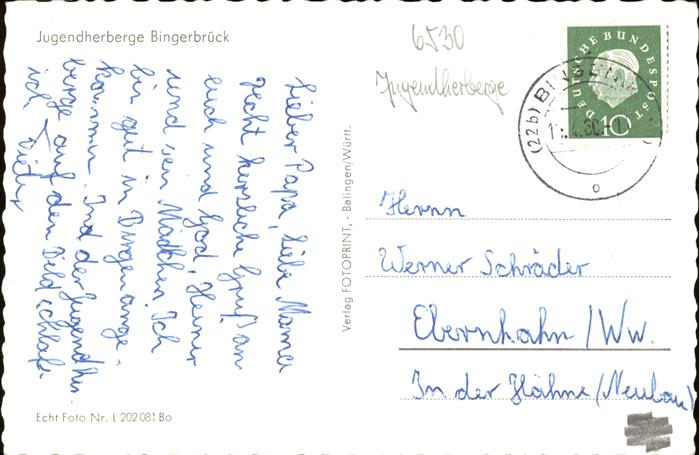 Jugendherberge Bingerbrück
6530
Jugendherberge
DEUTSCHE BUNDESPOST
10
(22b) BINGEN
Lieber Papa, liebe Mama
recht herzliche Grüß an
euch und God, Heiner
und sein Mädchen. Ich
bin gut in Bingen ange-
kommen. In der Jugendher
berge auf dem Bild schlafe
ich
Dieter
Verlag FOTOPRINT, - Balingen/Württ.
Herrn
Werner Schräder
Ebernhahn/Ww.
In der Hähne/(Neubau)
Echt Foto Nr. L 202 081 Bo